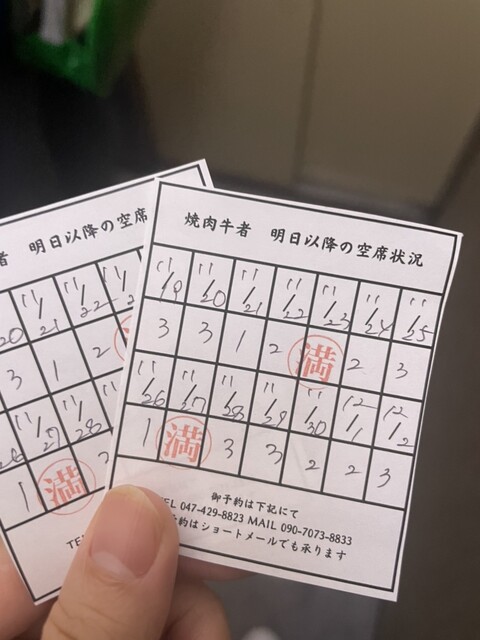 焼肉牛者 明日以降の空席状況
11/19 11/20 11/21 11/22 11/23 11/24 11/25
3 3 1 2 満 2 3
11/26 11/27 11/28 11/29 11/30 12/1 12/2
1 満 3 3 2 2 3
御予約は下記にて
TEL 047-429-8823 MAIL 090-7073-8833
予約はショートメールでも承ります
者 明日以降の空席
20 11/21 11/22 11/2
3 2
26 11/27 11/28
1 満
TE